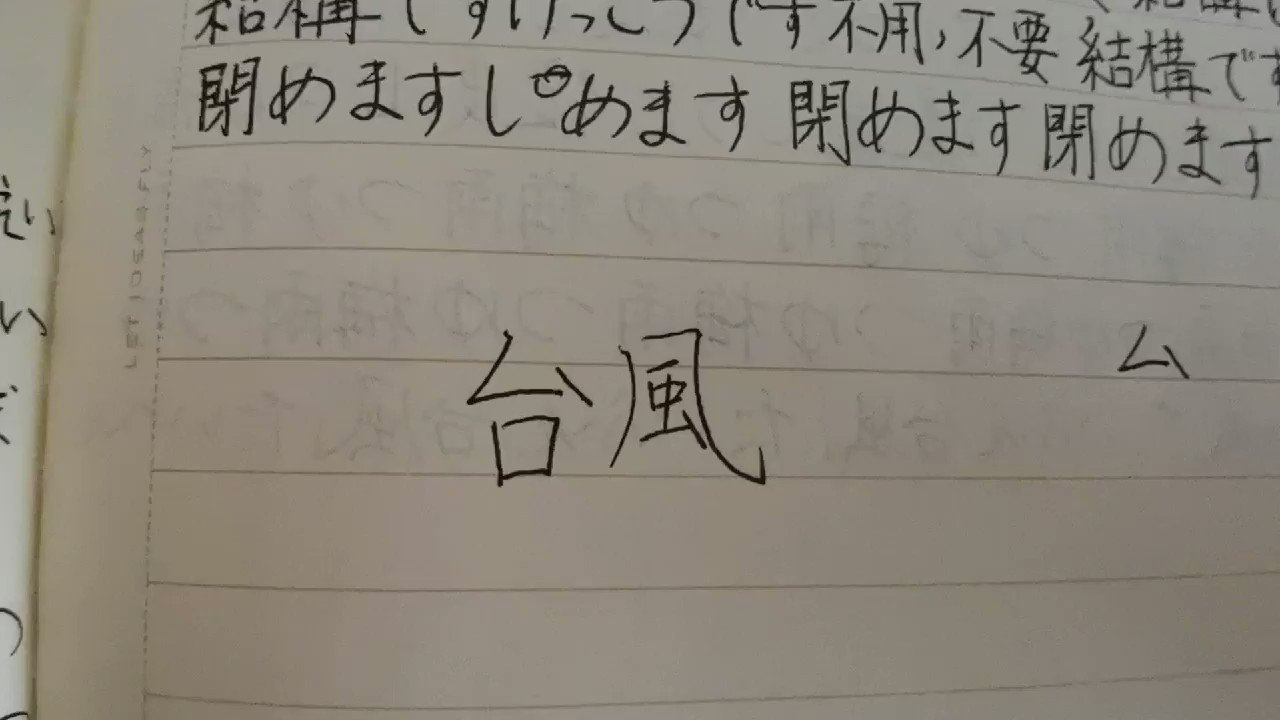 結構ですけっこうです不用,不要 結構です
閉めますしめます 閉めます閉めます
台風
ム
LET IDEAS FLY